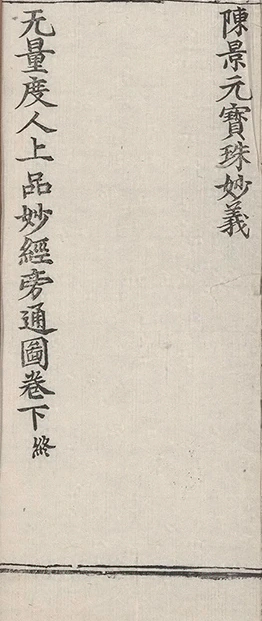 陳景元寶珠妙義
无量度人上品妙經旁通圖卷下終